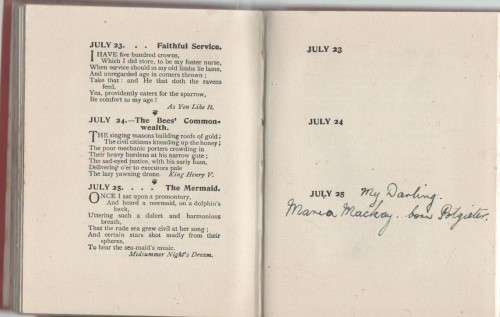 JULY 23. . . Faithful Service.
I HAVE five hundred crowns,
Which I did store, to be my foster nurse,
When service should in my old limbs lie lame,
And unregarded age in corners thrown;
Take that: and He that doth the ravens
feed,
Yea, providently caters for the sparrow,
Be comfort to my age!
As You Like It.
JULY 24.—The Bees' Common-
wealth.
THE singing masons building roofs of gold;
The civil citizens kneading up the honey;
The poor mechanic porters crowding in
Their heavy burdens at his narrow gate;
The sad-eyed justice, with his surly hum,
Delivering o'er to executors pale
The lazy yawning drone. King Henry V.
JULY 25. . . . The Mermaid.
ONCE I sat upon a promontory,
And heard a mermaid, on a dolphin's
back,
Uttering such a dulcet and harmonious
breath,
That the rude sea grew civil at her song;
And certain stars shot madly from their
spheres,
To hear the sea-maid's music.
Midsummer Night's Dream.
JULY 23
JULY 24
JULY 25 My Darling.
Maria Mackay. born Polgister.